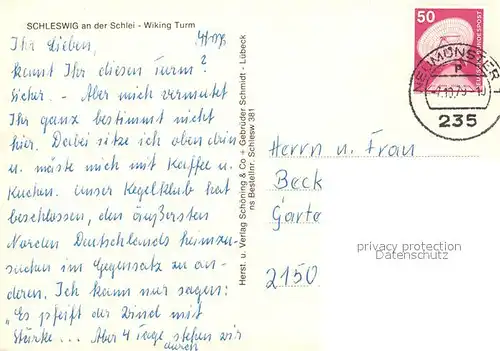 SCHLESWIG an der Schlei - Wiking Turm
Ihr Lieben,
kennt Ihr diesen Turm?
Sicher. - Aber mich vermutet
Ihr ganz bestimmt nicht
hier. Dabei sitze ich oben drin
u. mäste mich mit Kaffee u.
Kuchen. Unser Kegelklub hat
beschlossen, den äußersten
Norden Deutschlands heimzu-
suchen im Gegensatz zu an-
deren. Ich kann nur sagen:
"Es pfeift der Wind mit
Stärke ... Aber 4 Tage stehen wir
durch
Herst. u. Verlag Schöning & Co + Gebrüder Schmidt - Lübeck
ns Bestellnr. Schlesw 381
50
DEUTSCHE BUNDESPOST
NEUMÜNSTER 1
235
Herrn u. Frau
Beck
Garte
2150
privacy protection
Datenschutz